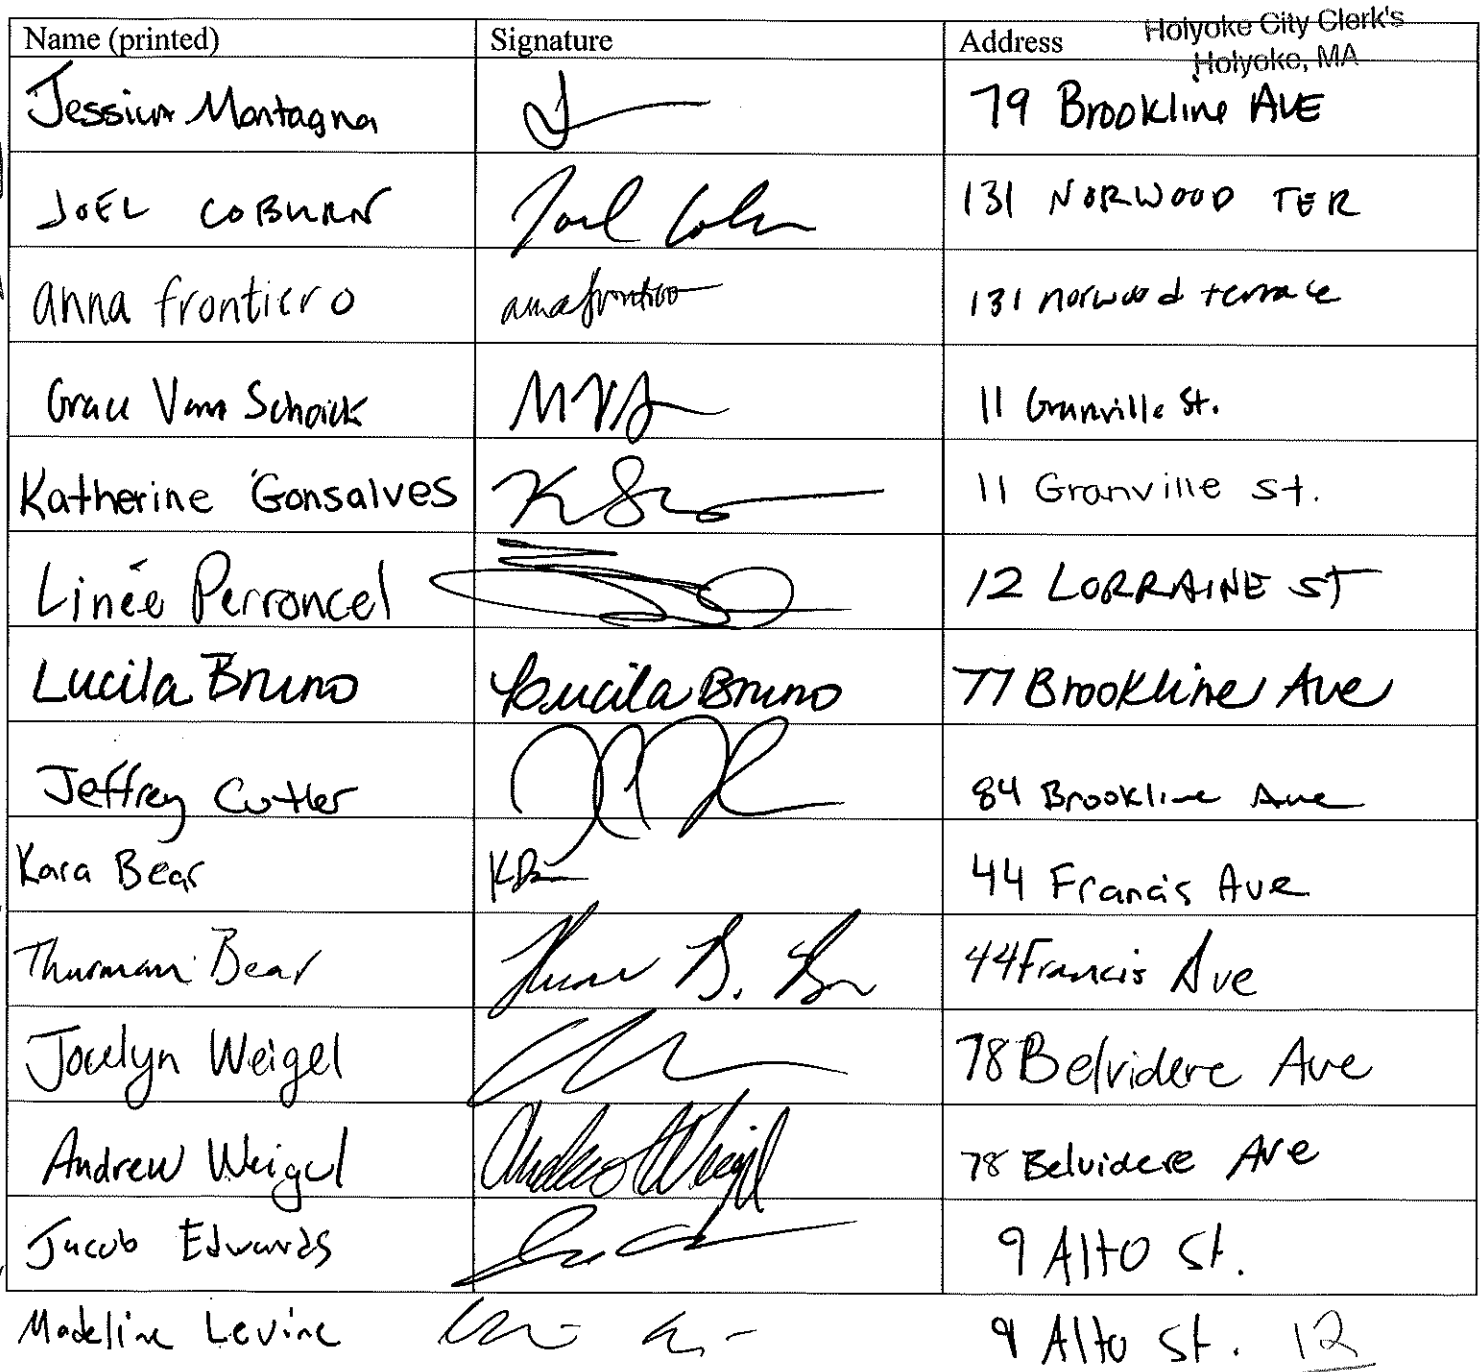 Holyoke City Clerk's
Holyoke, MA
Name (printed) Signature Address
Jessica Montagna J 79 Brookline AVE
JOEL COBURN Joel Cobn 131 NORWOOD TER
anna frontiero anna frontiero 131 norwood terrace
Grace Van Schoick MVS 11 Granville St.
Katherine Gonsalves 11 Granville St.
Linée Perroncel 12 LORRAINE ST
Lucila Bruno Lucila Bruno 77 Brookline Ave
Jeffrey Cutler 84 Brookline Ave
Kara Bear 44 Francis Ave
Thurman Bear 44 Francis Ave
Jocelyn Weigel 78 Belvidere Ave
Andrew Weigel Andrew Weigel 78 Belvidere Ave
Jacob Edwards 9 Alto St.
Madeline Levine 9 Alto St. 12